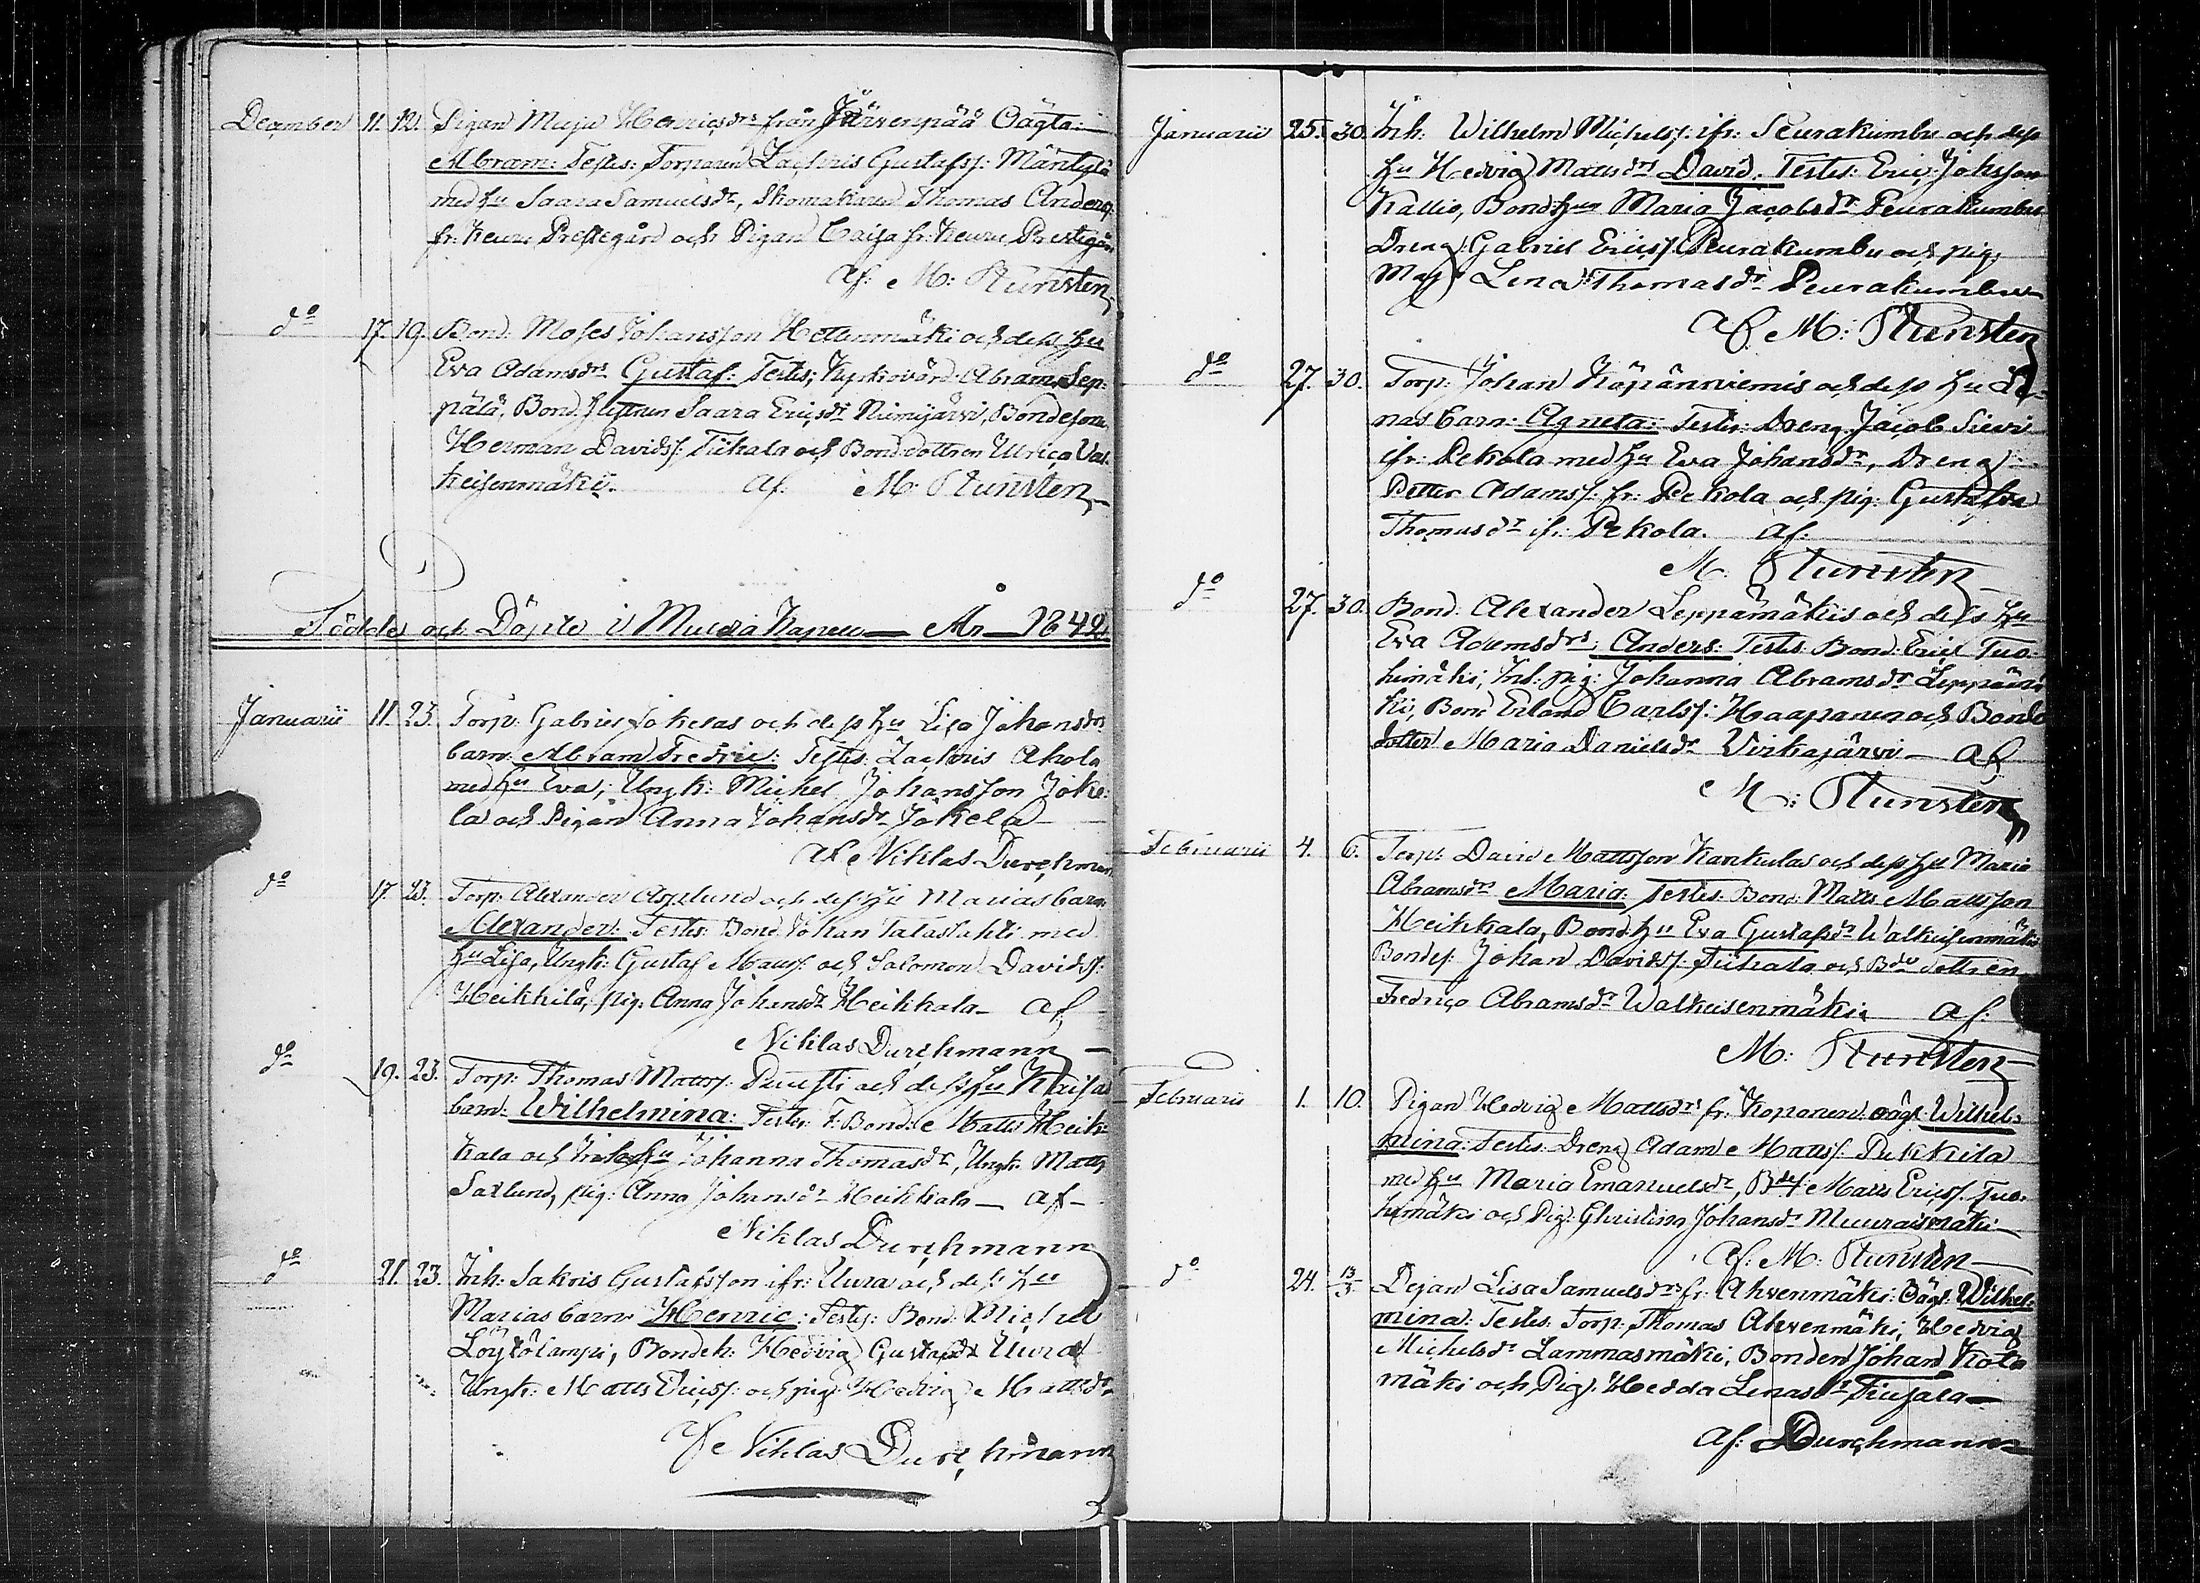 December 11. 12. Pigan Maja Henricsdrs från Järvenpää Oägta:
Abram: Testes: Torparen Zachris Gustafss: Mäntylä
med hu Saara Samuelsdr, Skomakaren Thomas Anderss
fr: Keuru Prestegård och Pigan Caisa fr: Keuru Prestegård
Af: M: Stunsten
do 17. 19. Bond: Moses Johansson Hettenmäki och dess hu
Eva Adamsdrs Gustaf: Testes; Kyrkovärd: Abram Sep-
pälä, Bond. hustrun Saara Ericsdr Niinijärvi, Bondesonen
Herman Davidss: Tiihala och Bond.dottren Ulrica Val-
keisenmäki. Af. M: Stunsten
Födde och Döpte i Multia Kapell År 1842
Januarii 11. 23. Torp: Gabriel Jokelas och dess hu Lisa Johansdrs
barn: Abram Fredric: Testes: Zachris Ahola
med hu Eva; Ungk: Michel Johansson Joke-
la och Pigan Anna Johansdr Jokela
Af Niklas Durchman
do 17. 23. Torp: Alexander Asplund och dess hu Marias barn
Alexander: Testes: Bond. Johan Talaslahti med
hu Lisa, Ungk: Gustaf Matts: och Salomon Davidss:
Heikkilä, pig: Anna Johansdr Heikkala Af
Niklas Durchmann
do 19. 23. Torp: Thomas Matss: och dess hu Kaisas
barn: Wilhelmina: Testes: F: Bond: Matts Heik-
kala och hu Johanna Thomasdr, Ungk: Matts
Saxlund, pig: Anna Johansdr Heikkala Af
Niklas Durchmann
do 21. 23. Inh: Sakris Gustafsson ifr: Uura och dess hu
Marias barn Henric: Testes: Bond: Michell
Löytölampi, Bondeh: Hedvig Gustafsdr Uura
Ungk: Matts Ericss: och pig: Hedvig Mattsdr
Af Niklas Durchmann
Januarii 25. 30. Inh: Wilhelm Michelss: ifr: Peurakumbu och dess
hu Hedvig Mattsdrs David. Testes: Eric Johsson
Kallio, Bond.hun Maria Jacobsdr Peurakumbu
Dreng: Gabriel Ericss: Peurakumbu och pig:
Maj Lena Thomasdr Peurakumbu
Af M: Stunsten
do 27. 30. Torp: Johan Käpänniemis och dess hu Le-
nas barn: Agneta: Testes: Dreng Jacob Sievi
ifr: Pekola med hu Eva Johansdr, Dreng
Petter Adamss: fr: Pekola och pig: Gustafva
Thomasdr if: Pekola. Af:
M. Stunsten
do 27. 30. Bond: Alexander Leppämäkis och dess hu
Eva Adamsdrs Anders: Testes: Bond: Eric Tuo-
himäki, Inh. pig: Johanna Abramsdr Leppämä
ki, Bond Erland Carlss: Haapanen och Bonde
dotter Maria Danielsdr Virkajärvi Af
M: Stunsten
Februarii 4. 6. Torp: David Mattsson Kankulas och dess hu Maria
Abramsdrs Maria: Testes: Bond: Matts Mattsson
Heikkala, Bond.hu Eva Gustafsdr Walkeisenmäki
Bondes: Johan Davidss: Tiihala och Bde dottren
Fredrica Abramsdr Walkeisenmäki Af:
M: Stunsten
Februarii 1. 10. Pigan Hedvig Mattsdrs fr: Koponen: oägt: Wilhel-
mina: Testes: Dreng Adam Matts: Pukkila
med hu Maria Emanuelsdr, Bdes: Matts Ericss: Tuo-
himäki och Pig: Christina Johansdr Muuraismäki
Af: M: Stunsten
do 24. 13/3 Pigan Lisa Samuelsdrs fr: Ahvenmäki: Oägt: Wilhel-
mina: Testes: Torp: Thomas Ahvenmäki, Hedvig
Michelsdr Lammasmäki, Bonden Johan Kota
mäki och Pig: Hedda Lenasdr
Af: Durchmann